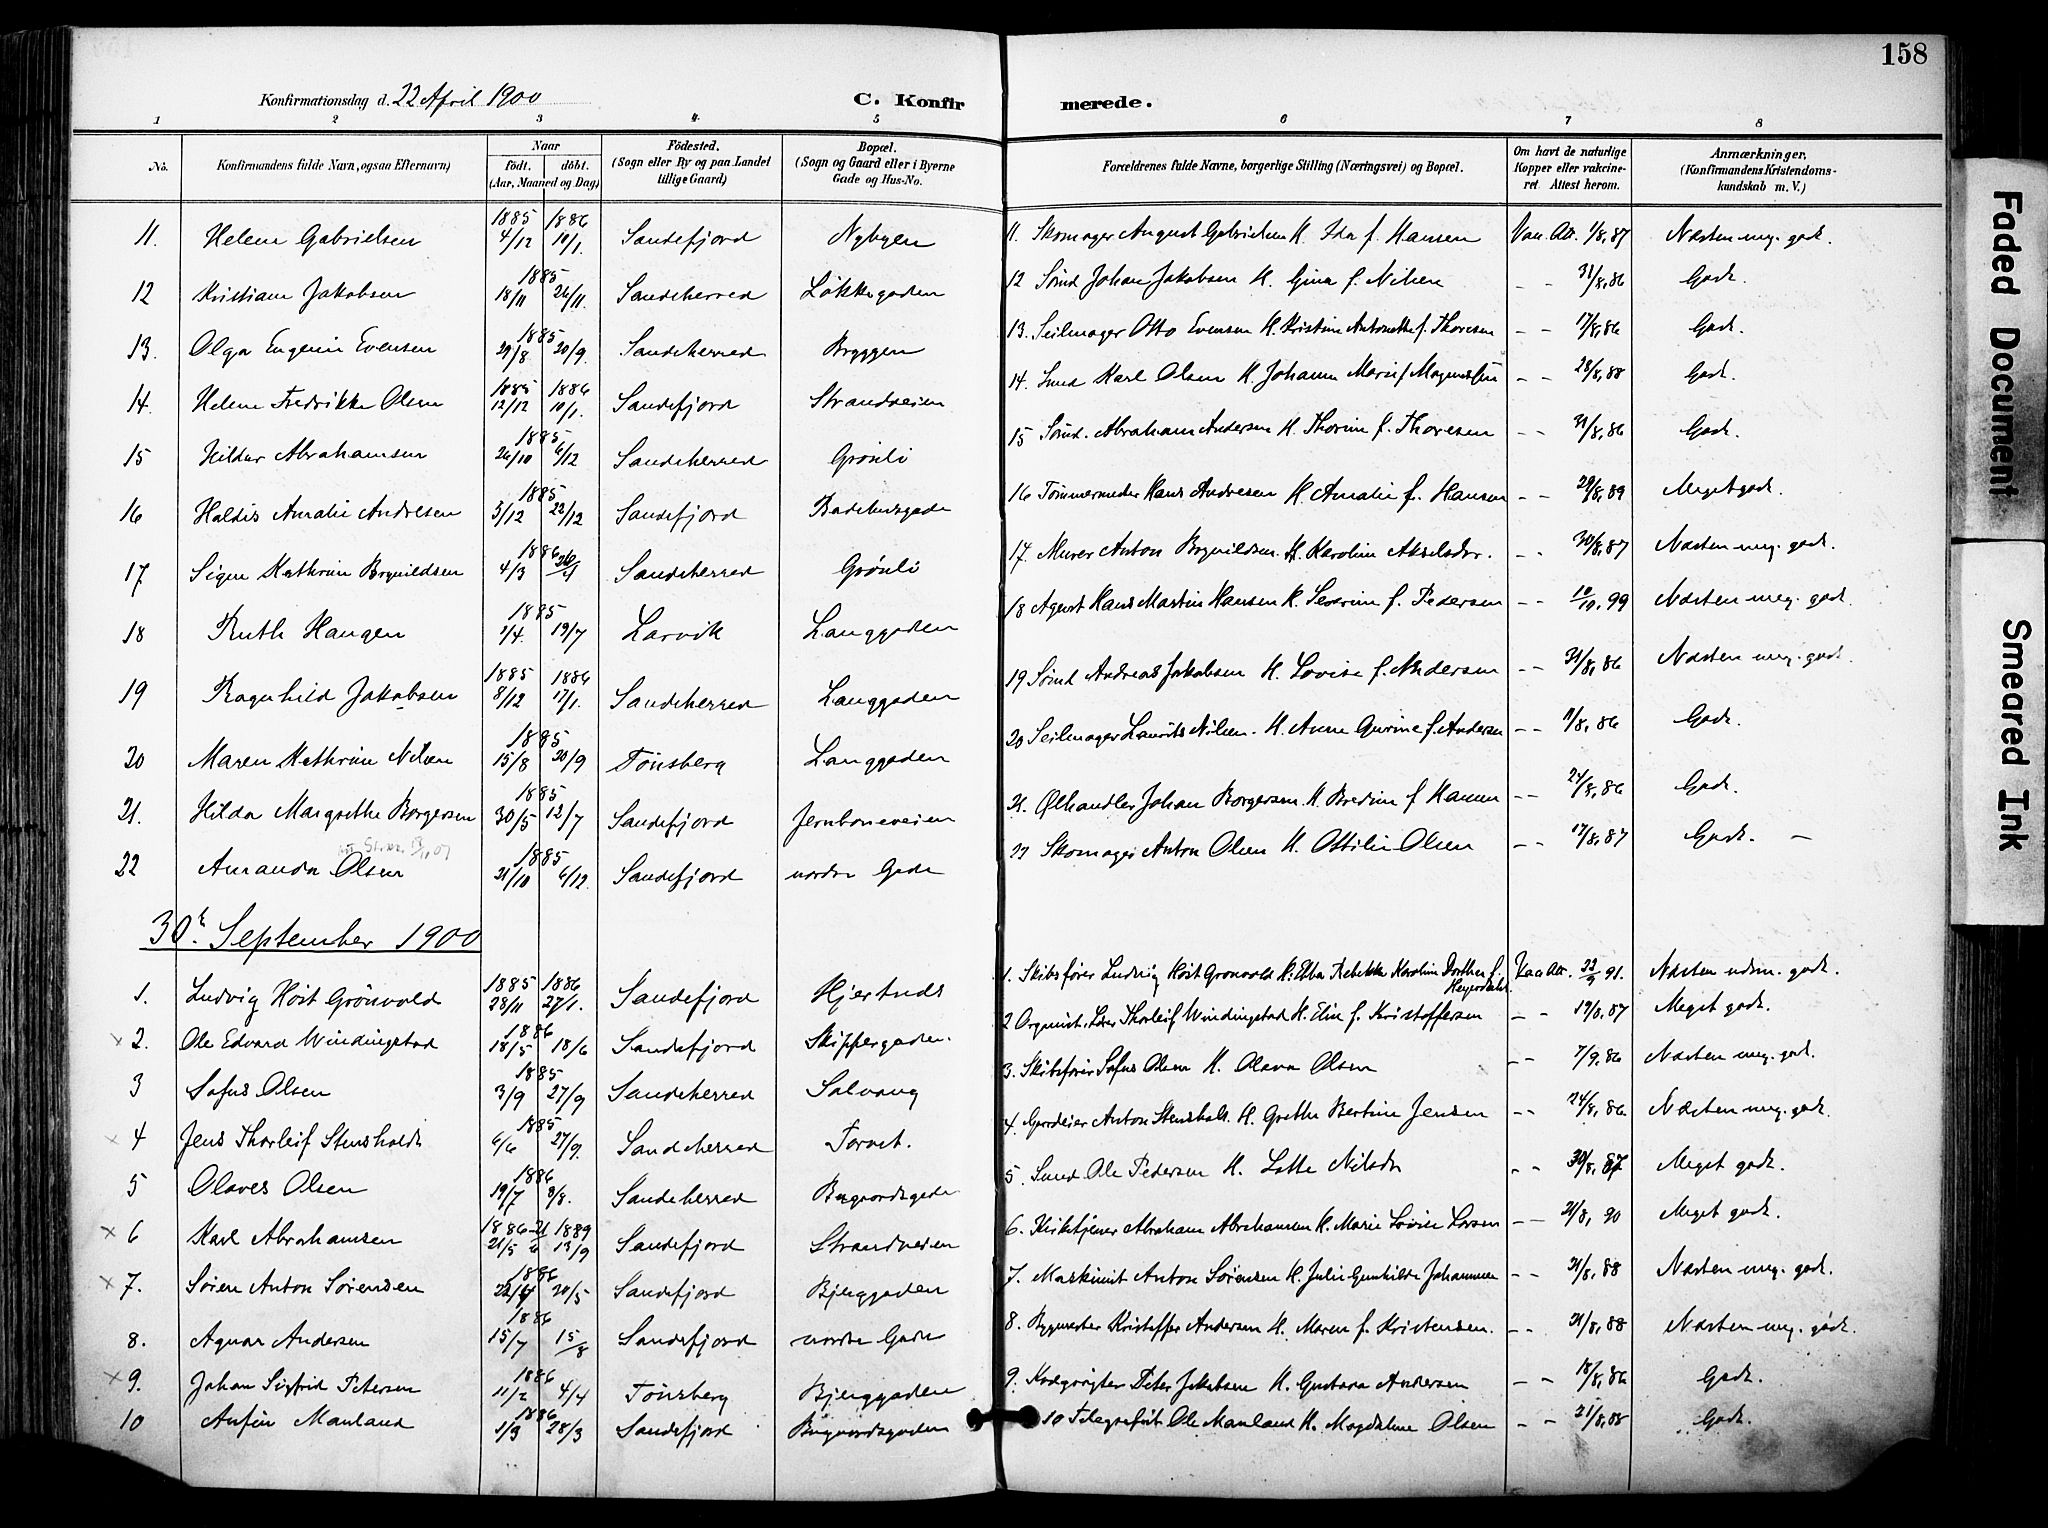 158
Konfirmationsdag d. 22 April 1900
C. Konfirmerede.
1 2 3 4 5 6 7 8
No. Konfirmandens fulde Navn, ogsaa Efternavn) Naar født, døbt. (Aar, Maaned og Dag) Fødested. (Sogn eller By og paa Landet tillige Gaard) Bopæl. (Sogn og Gaard eller i Byerne Gade og Hus-No. Forældrenes fulde Navne, borgerlige Stilling (Næringsvei) og Bopæl. Om havt de naturlige Kopper eller vakcineret. Attest herom. Anmærkninger, (Konfirmandens Kristendomskundskab m. V.)
11. Helene Gabrielsen 1885 4/12 1886 10/1. Sandefjord Nybyen 11. Skomager August Gabrielsen H. Ida f. Hansen Vac. Att. 1/8, 87 Næsten meg. godt.
12 Kristiane Jakobsen 1885 18/11 26/11. Sandeherred Løkkegaden 12 Sømd Johan Jakobsen H. Gina f. Nilsen - - 31/8, 86 Godt.
13. Olga Eugenie Evensen 1885 29/8 20/9. Sandeherred Bryggen 13. Seilmager Otto Evensen H. Kristine Antonette f. Thoresen - - 17/8, 86 Godt.
14. Helene Fredrikke Olsen 1885 12/12 1886 10/1. Sandefjord Strandveien 14. Smed Karl Olsen H. Johanne Marie f. - - 28/8, 88 Godt.
15 Hildur Abrahamsen 1885 26/10 6/12 Sandeherred Grønli 15 Sømd. Abraham Andersen H. Thorine f. Thoresen - - 31/8, 86 Godt.
16 Haldis Amalie Andresen 1885 3/12 22/12 Sandefjord Badehusgade 16 Tømmermder Hans Andresen H. Amalie f. Hansen - - 29/8, 89 Meget godt.
17 Signe Kathrine Brynildsen 1886 4/3 26/4 Sandeherred Grønli 17. Murer Anton Brynildsen. H. Karoline Akselsdr. - - 30/8, 87 Næsten meg. godt.
18 Ruth Hangen 1885 1/4. 19/7 Larvik Langgaden 18 Agent Hans Martin Hansen H. Severine f. Pedersen - - 10/10, 99 Næsten meg. godt.
19 Ragnhild Jakobsen 1885 8/12 1886 17/1. Sandeherred Langgaden 19 Sømd Andreas Jakobsen H. Lovise f. Andersen - - 31/8, 86 Næsten meg. godt.
20 Maren Kathrine Nilsen 1885 15/8 20/9 Tønsberg Langgaden 20 Seilmager Laurits Nilsen. H. Anne Gurine f. Andersen - - /8, 86 Godt.
21. Hilda Margrethe Borgersen 1885 30/5 12/7 Sandefjord Jernbaneveien 21. Ølhandler Johan Borgersen. H. Bredine f. Hansen - - 24/8, 86 Godt.
22 Amanda Olsen 1885 21/10 6/12. Sandefjord nordre Gade 22 Skomager Anton Olsen H. Ottilie Olsen - - 17/8, 87 Godt. -
30te September 1900
1. Ludvig Høst Grønvold 1885 28/11 1886 27/1. Sandefjord Hjertnes 1. Skibsfører Ludvig Høst Grønvold H. Ebba Rebekka Karoline Dorthea f. Heyerdahl Vac. Att. 22/9 91. Næsten udm. godt.
× 2. Ole Edvard Windingstad 1886 18/5 18/6 Sandefjord Skippergaden. 2 Organist, Lærer Thorleif Windingstad H. Elin f. Kristoffersen - - 19/8, 87 Meget godt.
3 Sofus Olsen 1885 3/9 27/9 Sandeherred Solvang 3. Skibsfører Sofus Olsen H. Olava Olsen - - 7/9, 86 Næsten meg. godt.
× 4 Jens Thorleif Stensholdt 1885 6/6 27/9. Sandeherred Torvet. 4. Gaardeier Anton Stensholt. H. Grethe Bertine Jensen - - 24/8, 86 Næsten meg. godt.
5 Olaves Olsen 1886 19/7 8/8. Sandeherred Bugaardsgade 5. Smed Ole Pedersen H. Lotte Nilsdr - - 30/8, 87 Meget godt.
× 6 Karl Abrahamsen 1886 21/5 1889 13/9 Sandefjord Strandveien 6. Kirketjener Abraham Abrahamsen H. Marie Lovise Larsen - - 21/8, 90 Meget godt.
× 7. Søren Anton Sørensen 1886 22/4 20/5 Sandefjord Bjerggaden 7. Maskinist Anton Sørensen H. Julie Gunhilde Johannesen - - 31/8, 88 Næsten meg. godt.
8. Agnar Andersen 1886 15/7 15/8 Sandefjord nordre Gade 8. Bygmester Kristoffer Andersen H. Maren f. Kristensen. - - 31/8, 88 Næsten meg. godt.
× 9. Johan Sigfrid Petersen 1886 11/2 4/4 Tønsberg Bjerggaden 9. Peter Jakobsen H. Gustava Andersen - - 18/8, 86 Godt.
10 Anfin Manland 1886 1/3 28/3 Sandefjord Bugaardsgaden 10 Telegrafist Ole Manland H. Magdalene Olsen - - 21/8, 88 Godt.
Faded Document
Smeared Ink